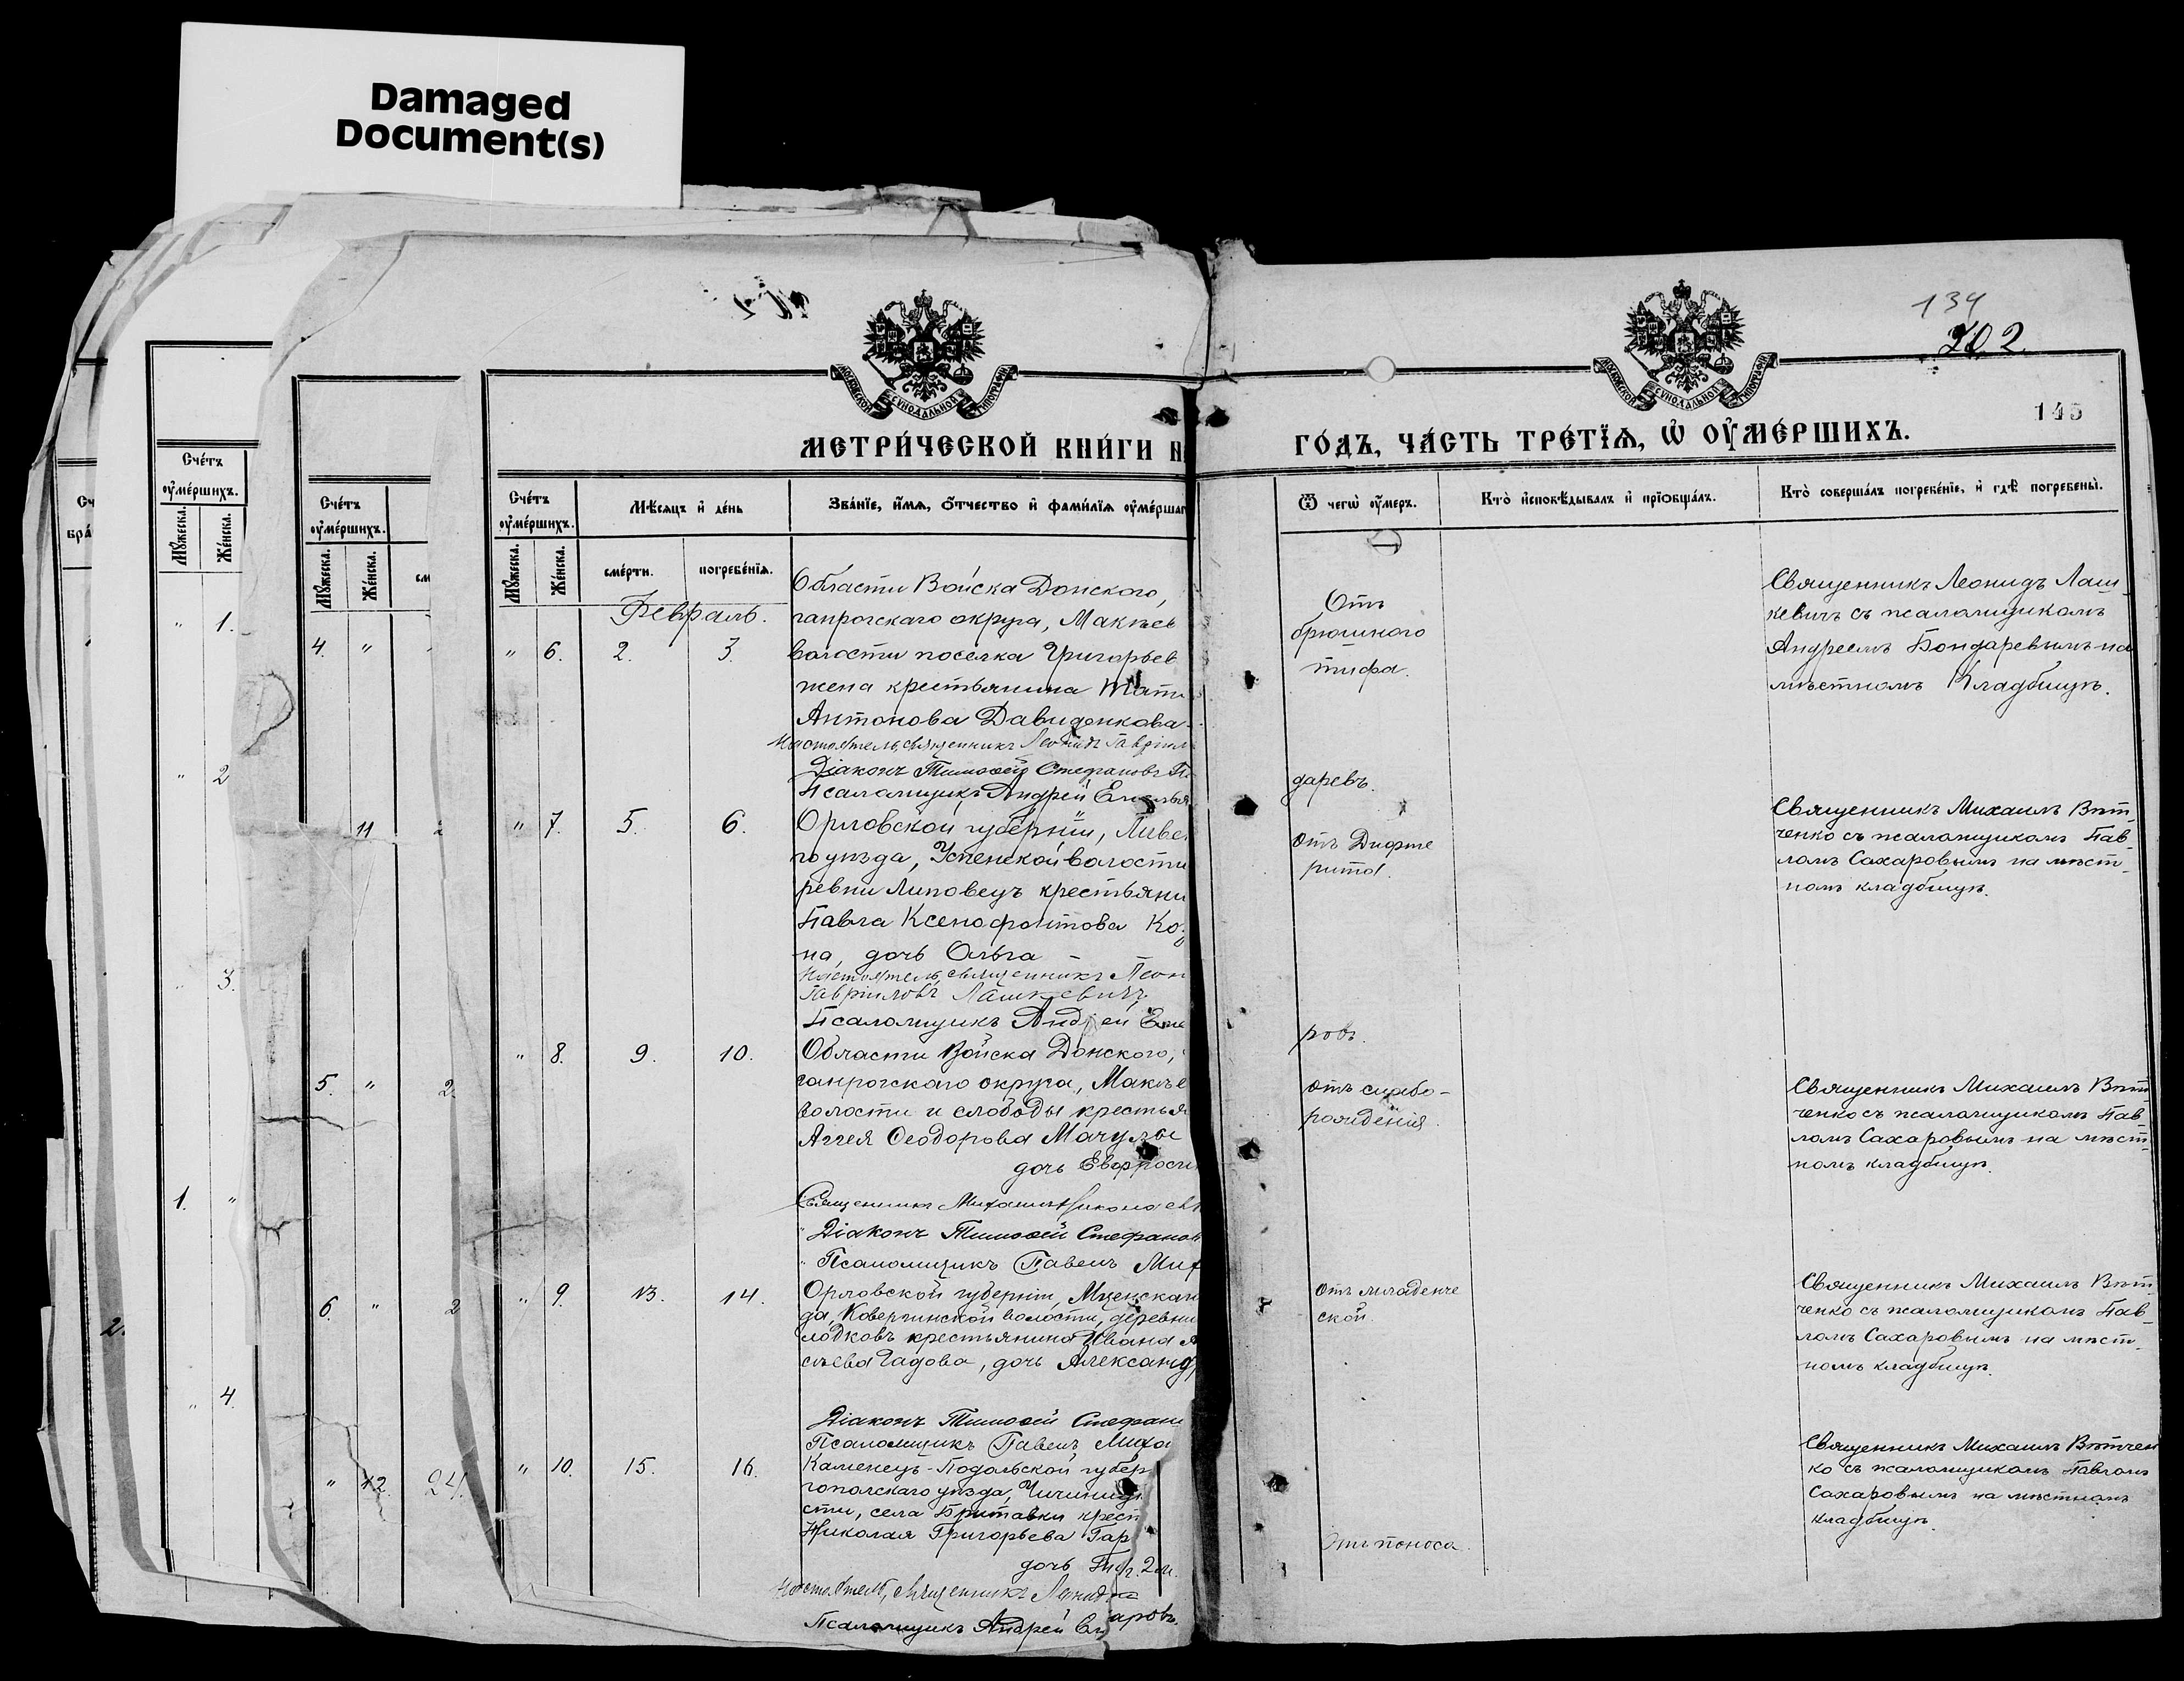 Damaged
Document(s)
134
202.
145
МОСКОВСКОЙ СУНОДАЛЬНОЙ ТИПОГРАФІИ
МОСКОВСКОЙ СУНОДАЛЬНОЙ ТИПОГРАФІИ
МЕТРИ́ЧЕСКОЙ КНИ́ГИ Н
ГО́ДЪ, ЧА́СТЬ ТРЕ́ТЇѦ, Ѡ҆ ОУ҆МЕ́РШИХЪ.
Сче́тъ
оу҆ме́ршихъ.
Мꙋ́жеска.
Же́нска.
" 1.
" 2
" 3.
1. "
" 4.
2.
Сче́тъ
оу҆ме́ршихъ.
Мꙋ́жеска.
Же́нска.
4. "
11
5. " 2
6. " 2
" 12. 24.
Сче́тъ
оу҆ме́ршихъ.
Мꙋ́жеска.
Же́нска.
Мѣ́сяцъ и҆ де́нь
сме́рти.
погребе́нїѧ.
Зва́нїе, и҆́мѧ, ѻ҆́тчество и҆ фами́лїѧ оу҆ме́ршаг
Ѿ чегѡ̀ оу҆́меръ.
Кто̀ и҆сповѣ́дывалъ и҆ прїѻбща́лъ.
Кто̀ соверша́лъ погребе́нїе, и҆ гдѣ̀ погребены̀.
Февраль.
" 6. 2. 3.
Области Войска Донского,
ганрогскаго округа, Макѣев
волости поселка Григорьев
жена крестьянина Тати
Антонова Давиденкова
Настоятель, священникъ Леонидъ Гавріил
Діаконъ Тимофей Стефановъ
Псаломщикъ Андрей Емелья
Отъ
брюшного
тифа.
даревъ.
Священникъ Леонидъ Лаш
кевичъ съ псаломщикомъ
Андреемъ Бондаревымъ на
мѣстномъ Кладбищѣ.
" 7. 5. 6.
Орловской губерніи, Ливе
го уѣзда, Успенской волости
ревни Липовецъ крестьяни
Павла Ксенофонтова Ко
на, дочь Ольга
Настоятель, священникъ Леон
Гавріиловъ Лашкевичъ
Псаломщикъ Андрей Еме
отъ Дифте
рита.
ровъ.
Священникъ Михаилъ Вѣт
ченко съ псаломщикомъ Пав
ломъ Сахаровымъ на мѣст
номъ кладбищѣ.
" 8. 9. 10.
Области Войска Донского,
ганрогскаго округа, Макѣе
волости и слободы крестья
Аггея Ѳеодорова Мачулы
дочь Евфроси
Священникъ Михаилъ Николаев
Діаконъ Тимофей Стефанов
Псаломщикъ Павелъ Мих
отъ слабо-
рожденія.
Священникъ Михаилъ Вѣт
ченко съ псаломщикомъ Пав
ломъ Сахаровымъ на мѣст
номъ кладбищѣ.
" 9. 13. 14.
Орловской губерніи, Мценскаг
да, волости, деревни
крестьянина Ивана А
сьева Гадова, дочь Александр
Діаконъ Тимофей Стефан
Псаломщикъ Павелъ Миха
отъ младенче
ской.
Священникъ Михаилъ Вѣт
ченко съ псаломщикомъ Пав
ломъ Сахаровымъ на мѣст
номъ кладбищѣ.
" 10. 15. 16.
Каменецъ-Подольской губер
гопольскаго уѣзда,
сти, села Бритавки крест
Николая Григорьева Гар
дочь
священникъ Леонидъ
Псаломщикъ Андрей
аровъ.
Отъ поноса.
Священникъ Михаилъ Вѣтчен
ко съ псаломщикомъ Павломъ
Сахаровымъ на мѣстномъ
кладбищѣ.